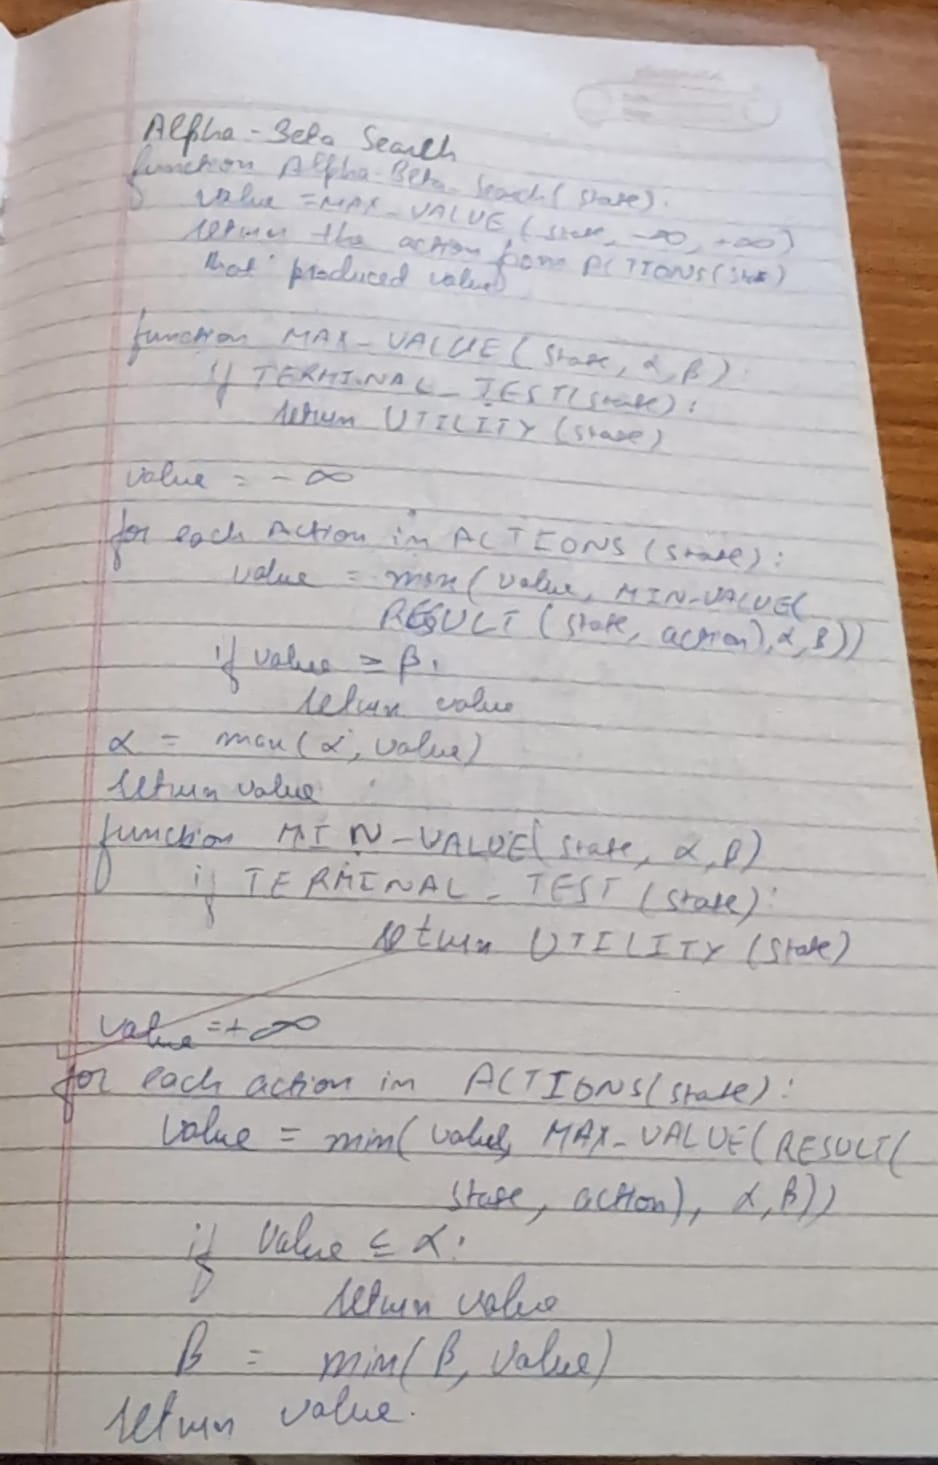 Alpha-Beta Search
function Alpha-Beta-Search(state):
value = MAX_VALUE (state, -∞, +∞)
return the action from ACTIONS(state)
that produced value
function MAX_VALUE (state, α, β):
if TERMINAL_TEST(state):
return UTILITY (state)
value = -∞
for each Action in ACTIONS (state):
value = max(value, MIN-VALUE(
RESULT (state, action), α, β))
if value ≥ β:
return value
α = max(α, value)
return value
function MIN-VALUE(state, α, β)
if TERMINAL_TEST (state):
return UTILITY (state)
value = +∞
for each action in ACTIONS(state):
value = min(value, MAX_VALUE(RESULT(
state, action), α, β))
if value ≤ α:
return value
β = min(β, value)
return value.